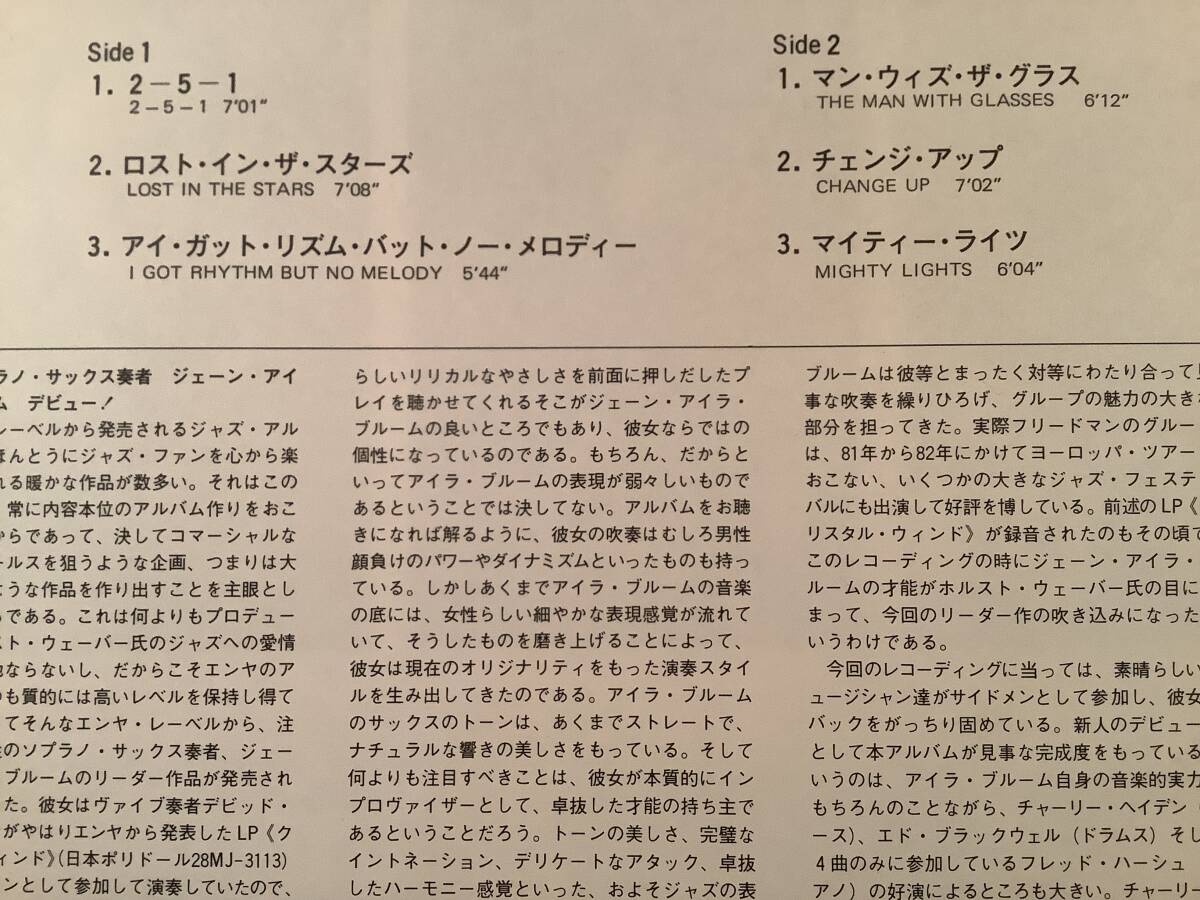 Side 1
1. 2－5－1
2－5－1 7′01″
2. ロスト・イン・ザ・スターズ
LOST IN THE STARS 7′08″
3. アイ・ガット・リズム・バット・ノー・メロディー
I GOT RHYTHM BUT NO MELODY 5′44″
Side 2
1. マン・ウィズ・ザ・グラス
THE MAN WITH GLASSES 6′12″
2. チェンジ・アップ
CHANGE UP 7′02″
3. マイティー・ライツ
MIGHTY LIGHTS 6′04″
ラノ・サックス奏者 ジェーン・アイ
ム デビュー！
レーベルから発売されるジャズ・アル
ほんとうにジャズ・ファンを心から楽
れる暖かな作品が数多い。それはこの
常に内容本位のアルバム作りをおこ
からであって、決してコマーシャルな
ールスを狙うような企画、つまりは大
ような作品を作り出すことを主眼とし
らである。これは何よりもプロデュー
スト・ウェーバー氏のジャズへの愛情
他ならないし、だからこそエンヤのア
つも質的には高いレベルを保持し得て
てそんなエンヤ・レーベルから、注
性のソプラノ・サックス奏者、ジェー
ブルームのリーダー作品が発売され
た。彼女はヴァイブ奏者デビッド・
がやはりエンヤから発表したLP《ク
ィンド》（日本ポリドール28MJ-3113）
ンとして参加して演奏していたので、
らしいリリカルなやさしさを前面に押しだしたプ
レイを聴かせてくれるそこがジェーン・アイラ・
ブルームの良いところでもあり、彼女ならではの
個性になっているのである。もちろん、だからと
いってアイラ・ブルームの表現が弱々しいもので
あるということでは決してない。アルバムをお聴
きになれば解るように、彼女の吹奏はむしろ男性
顔負けのパワーやダイナミズムといったものも持っ
ている。しかしあくまでアイラ・ブルームの音楽
の底には、女性らしい細やかな表現感覚が流れて
いて、そうしたものを磨き上げることによって、
彼女は現在のオリジナリティをもった演奏スタイ
ルを生み出してきたのである。アイラ・ブルーム
のサックスのトーンは、あくまでストレートで、
ナチュラルな響きの美しさをもっている。そして
何よりも注目すべきことは、彼女が本質的にイン
プロヴァイザーとして、卓抜した才能の持ち主で
あるということだろう。トーンの美しさ、完璧な
イントネーション、デリケートなアタック、卓抜
したハーモニー感覚といった、およそジャズの表
ブルームは彼等とまったく対等にわたり合って見
事な吹奏を繰りひろげ、グループの魅力の大きな
部分を担ってきた。実際フリードマンのグルー
は、81年から82年にかけてヨーロッパ・ツアー
おこない、いくつかの大きなジャズ・フェステ
バルにも出演して好評を博している。前述のLP《
リスタル・ウィンド》が録音されたのもその頃で
このレコーディングの時にジェーン・アイラ・
ルームの才能がホルスト・ウェーバー氏の目に
まって、今回のリーダー作の吹き込みになった
いうわけである。
今回のレコーディングに当っては、素晴らしい
ュージシャン達がサイドメンとして参加し、彼女
バックをがっちり固めている。新人のデビュー
として本アルバムが見事な完成度をもっている
いうのは、アイラ・ブルーム自身の音楽的実力
もちろんのことながら、チャーリー・ヘイデン（
ース）、エド・ブラックウェル（ドラムス）そし
4曲のみに参加しているフレッド・ハーシュ
アノ）の好演によるところも大きい。チャーリー